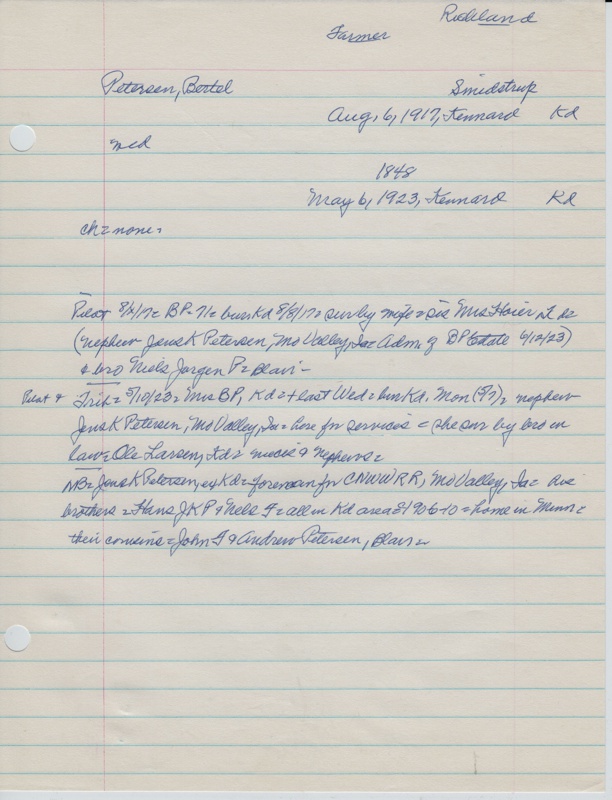 Richland
Farmer
Petersen, Bertel Smidstrup
Aug, 6, 1917, Kennard Kd
md
1848
May 6, 1923, Kennard Kd
ch = none =
Pilot 8/ /17 = BP = 71 = bur Kd 8/8/17 = sur by wife = sis Mrs
(nephew Jens K Petersen, Mo Valley, Ia = Adm. of BP Estate 6/12/23)
& bro Niels Jorgen P = Blair -
Pilot & Trib = 5/10/23 = Mrs BP, Kd = + last Wed = bur Kd. Mon (5/7) = nephew
Jens K Petersen, Mo Valley, Ia = here for services = (she sur by bro in
law = Ole Larsen, Kd = nieces & nephews =
NB = Jens K Petersen, ex Kd = foreman for CNWW RR, Mo Valley, Ia =
brothers = Hans J K P & Nels = all in Kd area 1906-10 = home in Minn =
their cousins = John & Andrew Petersen, Blair =